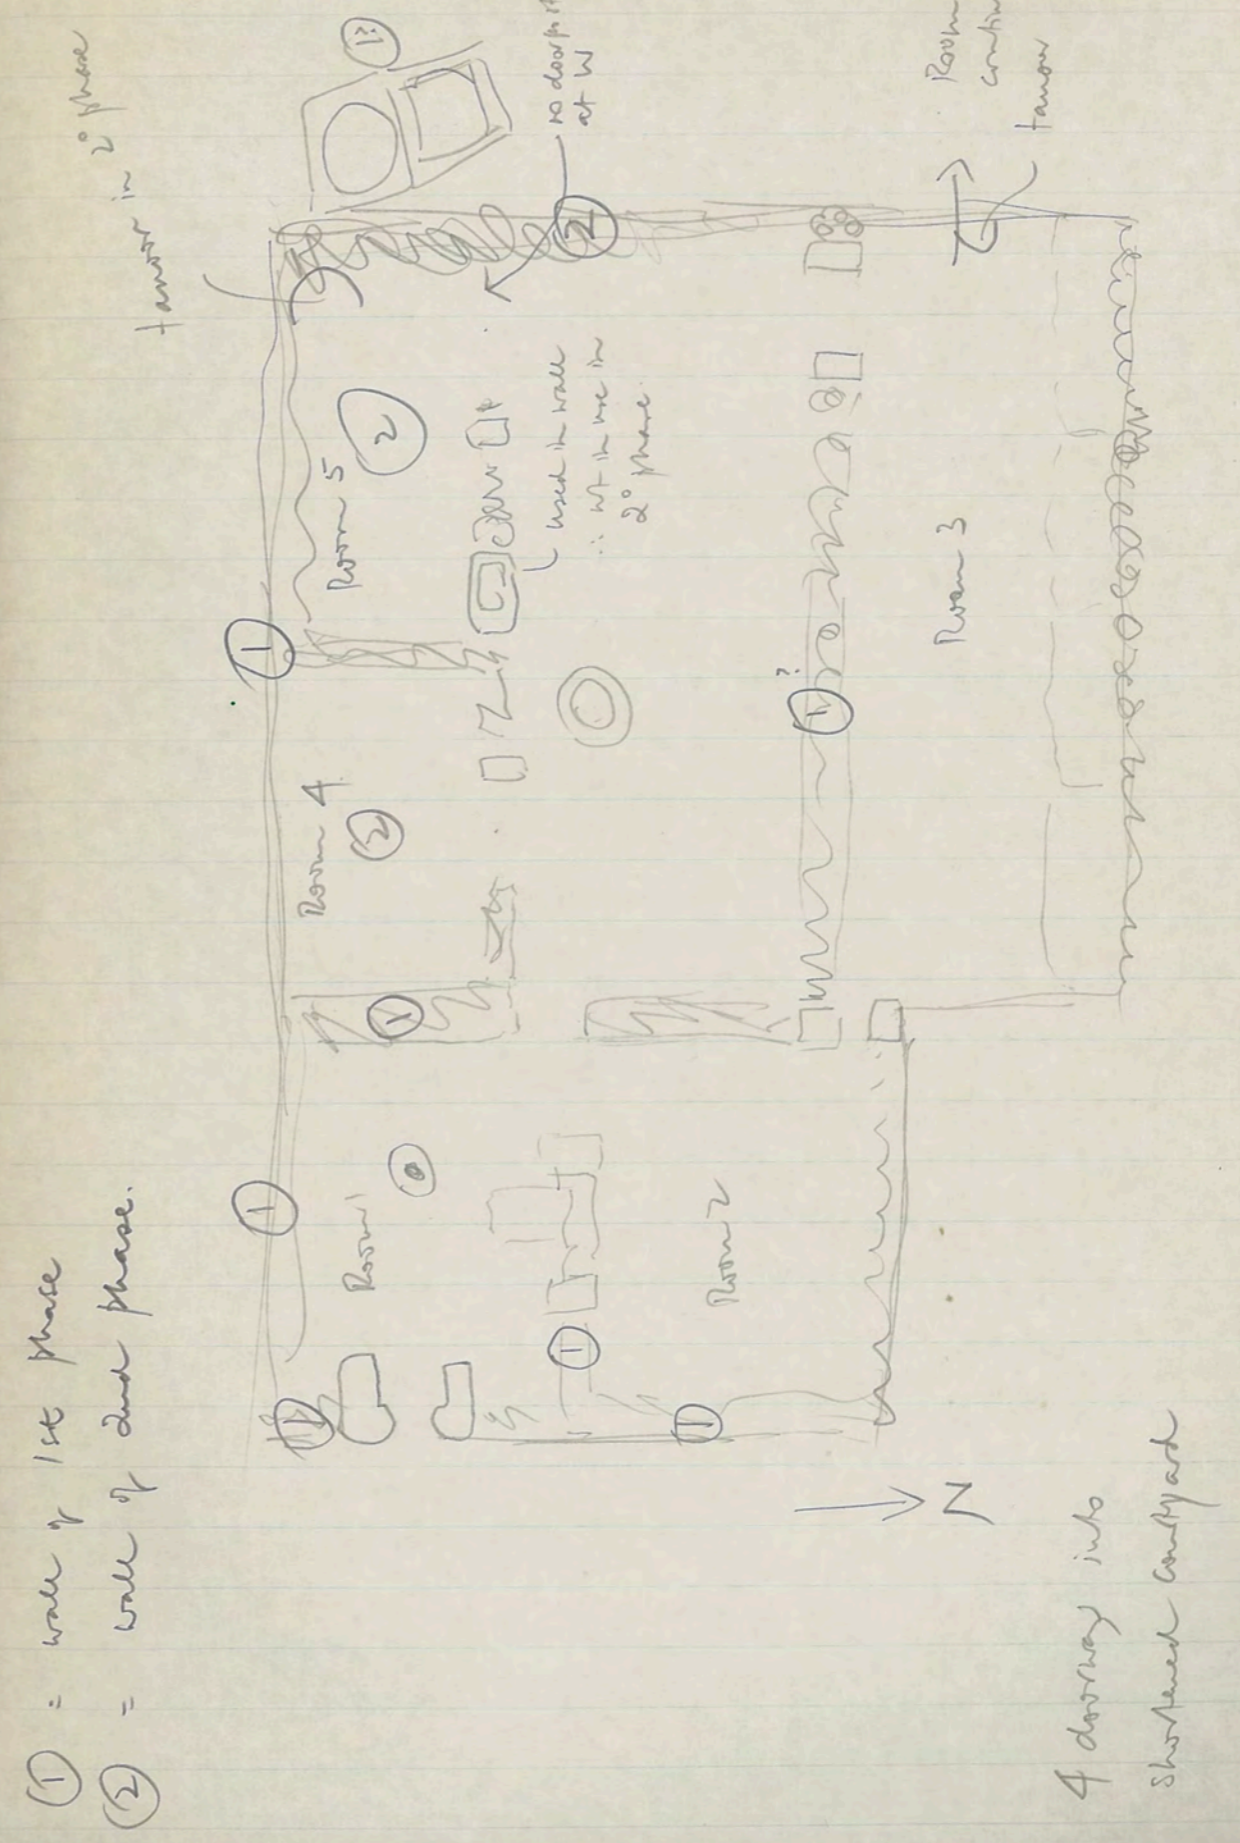 ① = wall of 1st phase
② = wall of 2nd phase.
tanour in 2° phase
①
①
①
1?
Room 1
Room 4
②
Room 5
②
①
①
no doorpost
at W
②
used in wall
∴ not in use in
2° phase.
①
①
Room 2
① ?
Room 3
Room
contin
tanour
N
4 doorway into
shortened courtyard